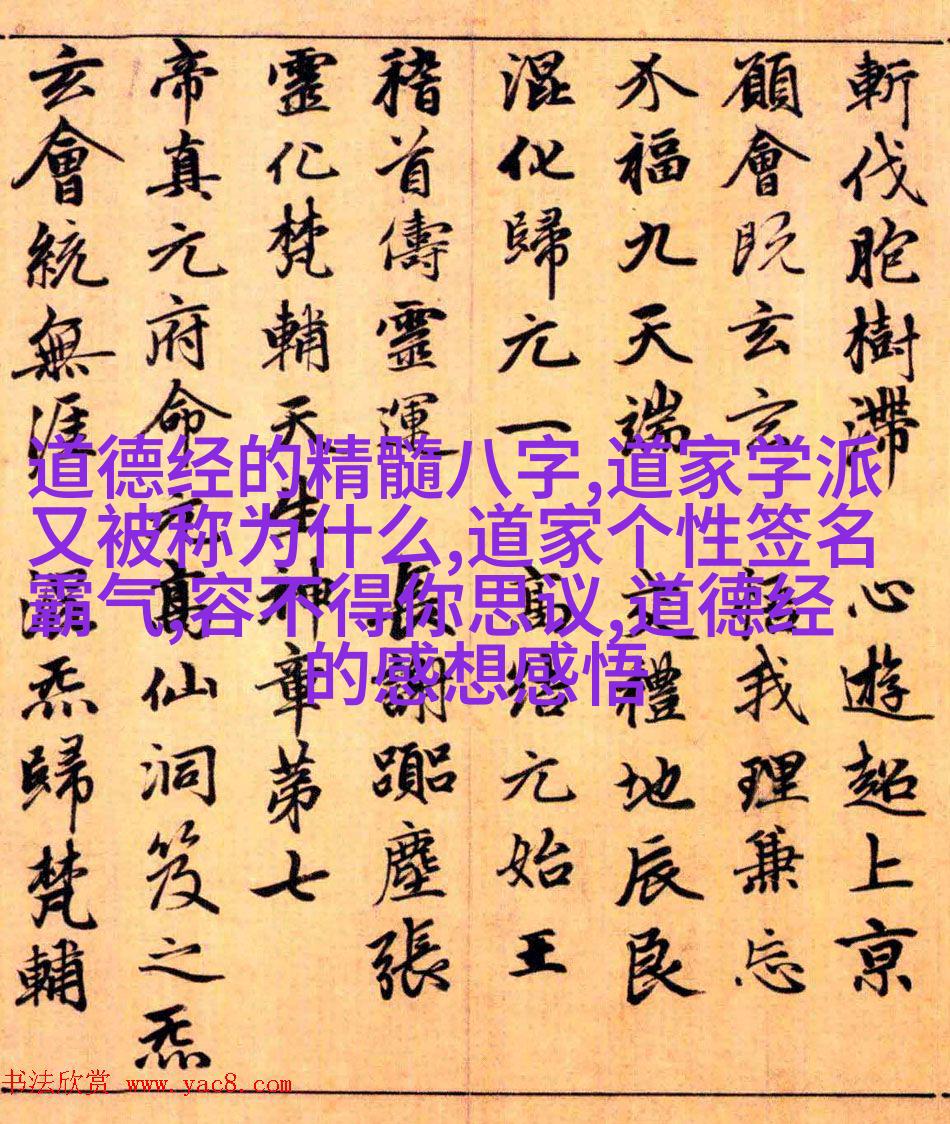 斬伐胞樹滯心遊超上京
願會既玄玄悟我理兼忘
介福九天端交禮地辰良
混化歸元一高元始王
稽首儔靈運長謝躡塵張
靈化梵輔天生神章第七
帝真元府命高仙洞笈之炁
玄會統無涯混炁歸梵輔
道德经的精髓八字,道家学派
又被称为什么,道家个性签名
霸气,容不得你思议,道德经
的感想感悟
书法欣赏 www.yac8.com